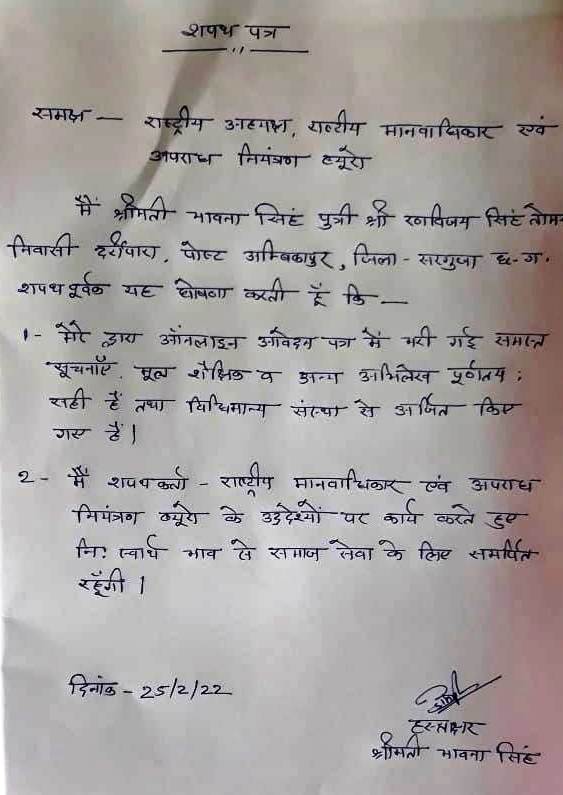 शपथ पत्र
समक्ष — राष्ट्रीय अध्यक्ष, राष्ट्रीय मानवाधिकार एवं
अपराध नियंत्रण ब्यूरो
मैं श्रीमती भावना सिंह पुत्री श्री रणविजय सिंह तोमर
निवासी दर्रीपारा, पोस्ट अम्बिकापुर, जिला - सरगुजा छ.ग.
शपथ पूर्वक यह घोषणा करती हूँ कि —
1- मेरे द्वारा ऑनलाइन आवेदन पत्र में भरी गई समस्त
सूचनाएँ, मूल शैक्षिक व अन्य अभिलेख पूर्णतय :
सही हैं तथा विधिमान्य संस्था से अर्जित किए
गए हैं।
2 - मैं शपथकर्ता - राष्ट्रीय मानवाधिकार एवं अपराध
नियंत्रण ब्यूरो के उद्देश्यों पर कार्य करते हुए
नि: स्वार्थ भाव से समाज सेवा के लिए समर्पित
रहूँगी।
दिनांक - 25/2/22
हस्ताक्षर
श्रीमती भावना सिंह